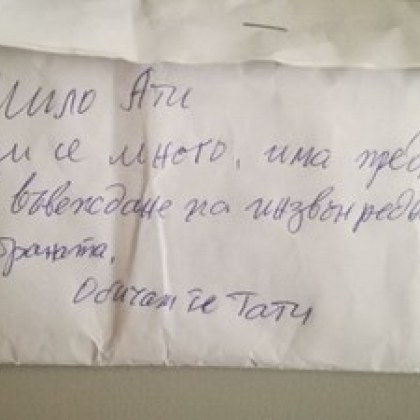 Мило Ати
ми се много, има
въвеждане на инзвънредн
страната.
Обичам те Тати